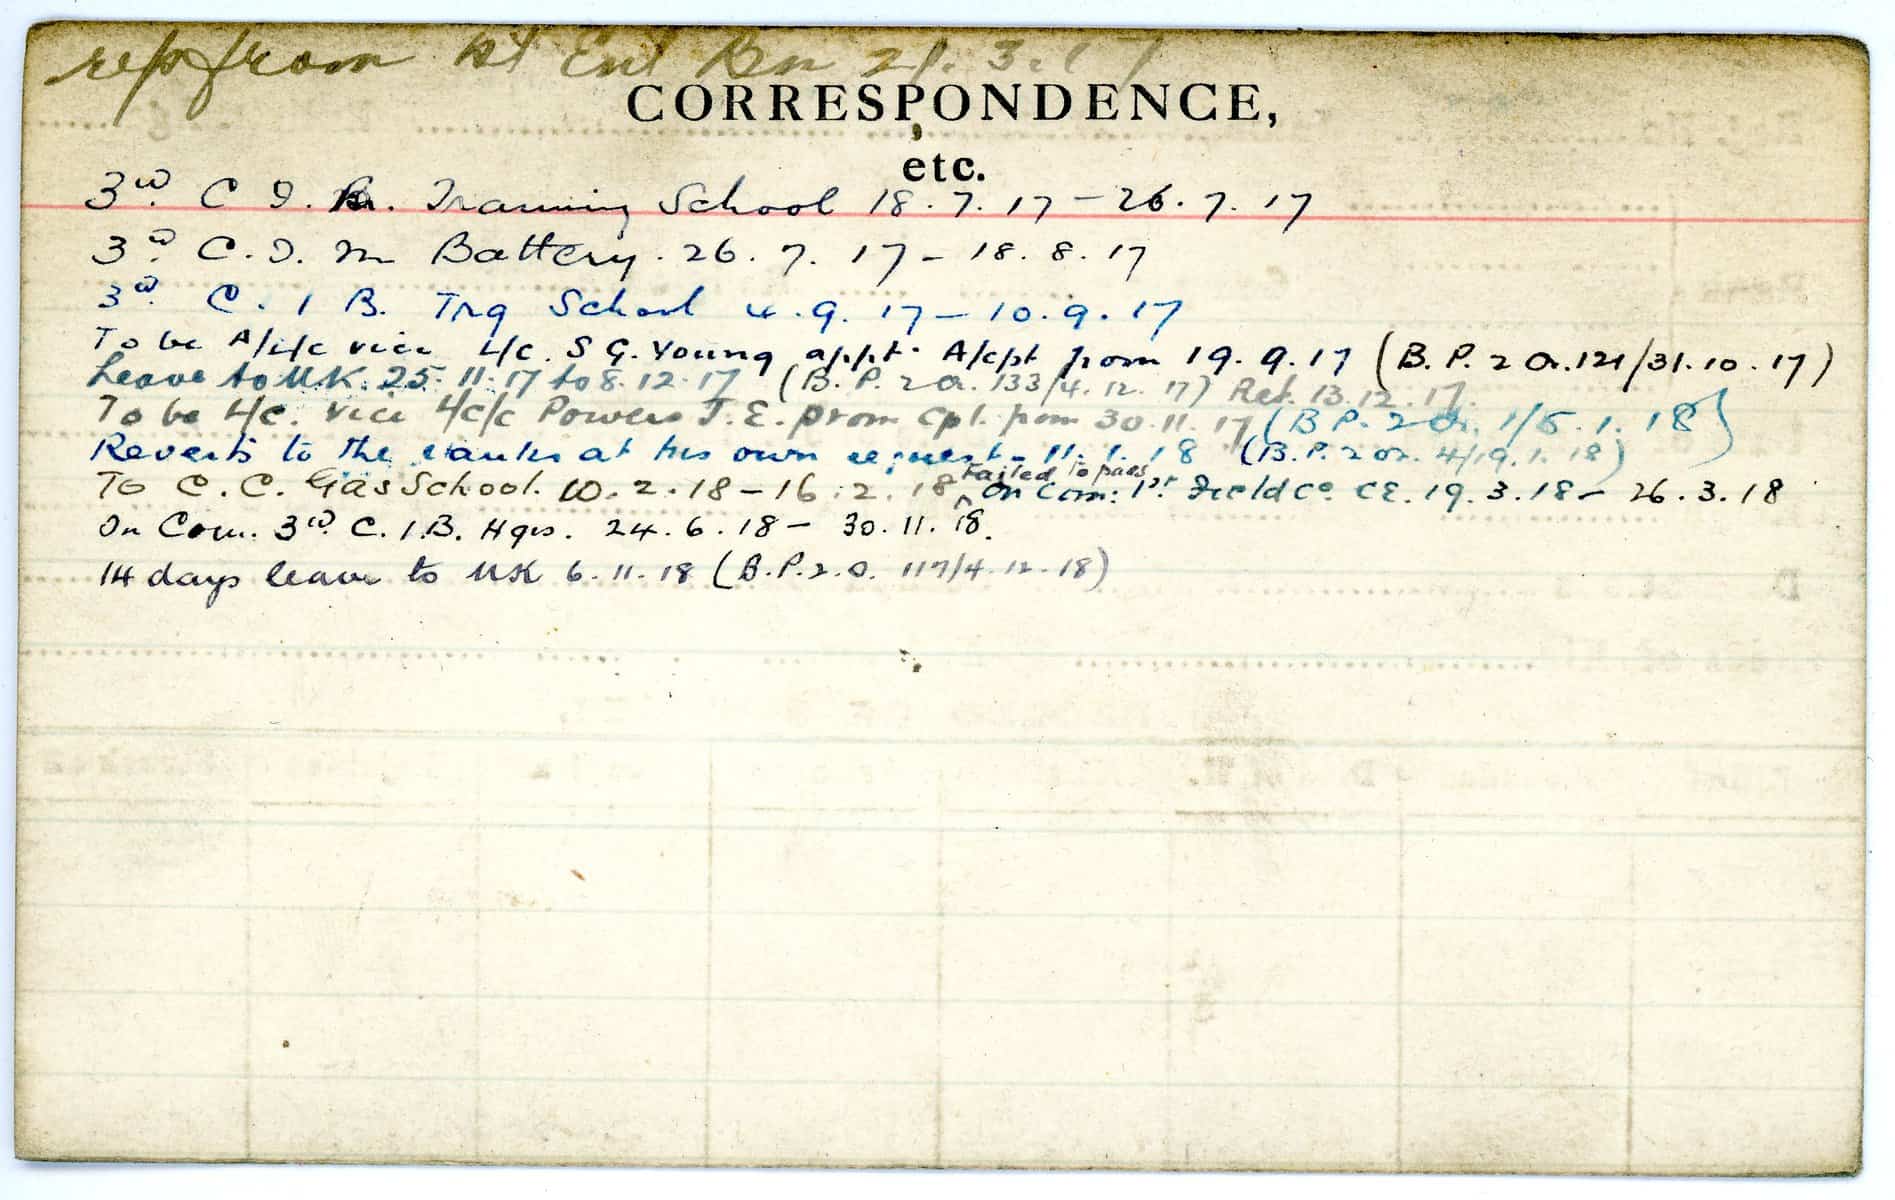 rep from Ent Bn 21.3.17
CORRESPONDENCE,
etc.
3rd. C I. Training School 18.7.17 - 26.7.17
3rd. C.I. M Battery. 26.7.17 - 18.8.17
3rd. C. I B. Trg School 4.9.17 - 10.9.17
To be A/L/c vice L/c. S G. Young appt. A/cpl from 19.9.17 (B.P. 2 O. 121/31.10.17)
Leave to U.K. 25.11.17 to 8.12.17 (B.P. 2 O. 133/4.12.17) Ret. 13.12.17.
To be L/c. vice L/c/c Powers J.E. prom Cpl. from 30.11.17 (B P. 2 O. 1/5.1.18)
Reverts to the ranks at his own request - 11.1.18 (B.P. 2 Or. 4/19.1.18)
To C.C. Gas School. 10.2.18 - 16.2.18 Failed to pass On Com: 1st. Field Co. CE. 19.3.18 - 26.3.18
On Com. 3rd C.I.B. Hqrs. 24.6.18 - 30.11.18.
14 days leave to UK 6.11.18 (B.P.2.O. 117/4.12.18)